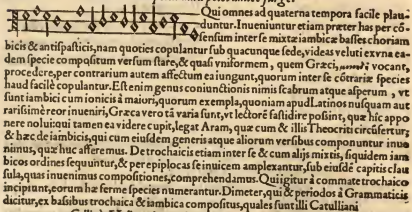 Qui omnes ad quaterna tempora facile plau
duntur. Inueniuntur etiam præter has per cõ-
sensum inter se mixtæ iambicæ bases choriam
bicis & antispasticis, nam quoties copulantur sub quacunque sede, videas veluti ex vna ea-
dem specie compositum versum stare, & quasi vniformem, quem Græci, vocant.
procedere, per contrarium autem affectum ea iungunt, quorum inter se cõtrariæ species
haud facile copulantur. Est enim genus coniunctionis nimis scabrum atque asperum, vt
sunt iambici cum ionicis à maiori, quorum exempla, quoniam apud Latinos nusquam aut
rarissimè reor inueniri, Græca verò tã varia sunt, vt lectorẽ fastidire possint, quæ hîc appo
nere nolui, qui tamen ea videre cupit, legat Aram, quæ cum & illis Theocriti circũfertur,
& hæc de iambicis, qui cum eiusdem generis atque aliorum versibus componuntur inuo
nimus, quæ huc afferemus. De trochaicis etiam inter se & cum alijs mixtis, siquidem iam
bicos ordines sequuntur, & per epiplocas se inuicem amplexantur, sub eiusdẽ capitis clau
sula, quas inuenimus compositiones, comprehendamus. Qui igitur à commate trochaico
incipiunt, eorum hæ ferme species numerantur. Dimeter, qui & periodos à Grammaticis
dicitur, ex basibus trochaica & iambica compositus, quales sunt illi Catulliani